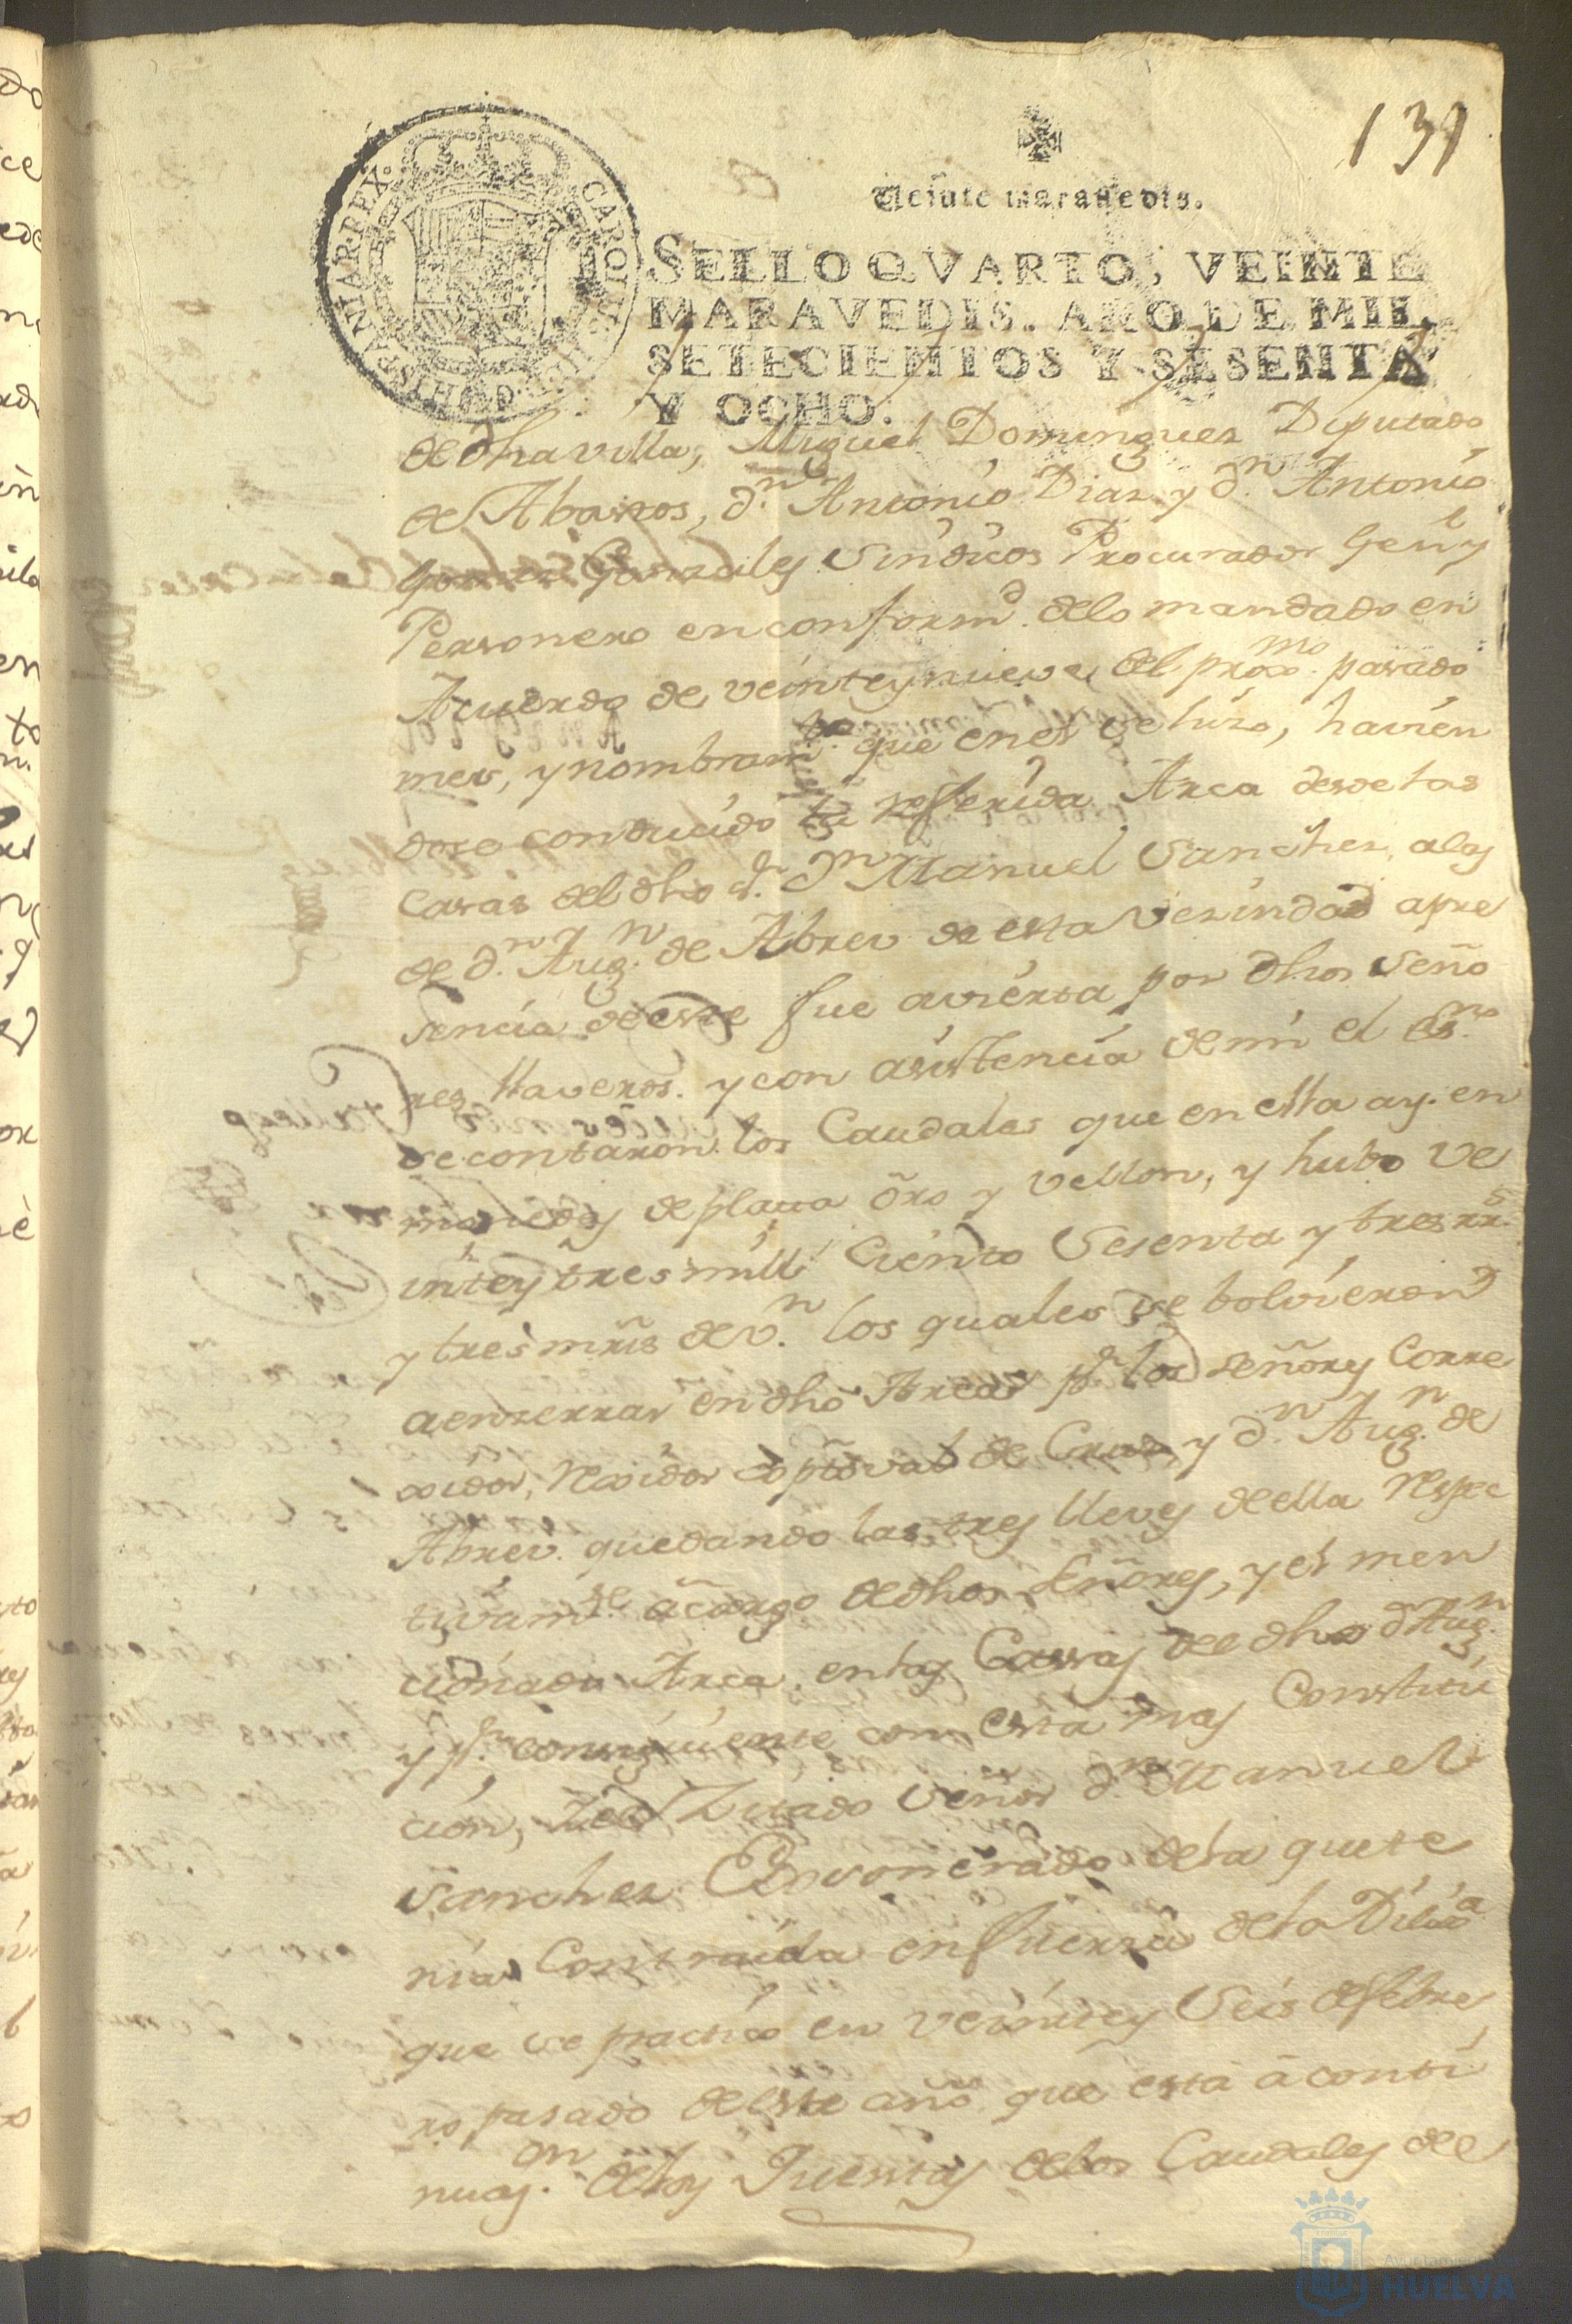 131
Veinte maravedis.
SELLO QVARTO, VEINTE
MARAVEDIS, AÑO DE MIL
SETECIENTOS Y SESENTA
Y OCHO.
CAROLUS III D G HISPANIAR REX
de dha villa, Miguel Dominguez Diputado
de Abastos, dn. Antonio Diaz y dn. Antonio
Gonzales Sindicos Procurador Genl y
Personero en conformd. delo mandado en
Acuerdo de veinte y nueve del proxmo. pasado
mes, y nombramto. que en el se hizo, havien
dose conducido la referida Arca desde las
casas del dho sr. Dn Manuel Sanchez, a las
de dn. Augn. de Abreu de esta Vezindad a pre
sencia de este fue avierta por dhos Seño
res Llaveros. y con asistencia de mi el Esno.
se contaron los Caudales que en ella ay. en
monedas de plata òro y vellon, y hubo ve
inte y tres mill Ciento Sesenta y tres rrs.
y tres mrs de vn. los quales se bolvieron
a enzerrar en dho Arca pr. los señores Corre
xidor, Rexidor Xptoval de Cruz, y dn. Augn. de
Abreu. quedando las tres lleves de ella respec
tivamte. a cargo de dhos Señores, y el men
cionado Arca, en las Casas de dho dn Augn.
y pr. consiguiente con esta mas Constitu
cion, Zitado Señor dn Manuel
Sanchez Exsonerado de la que te
nia Contraida en fuerza de la Dilixa
que se practico en veinte y Seis de febre
ro pasado de este año que està à conti
nuaon. de las Quentas de los Caudales de
Ayuntamiento de
HUELVA